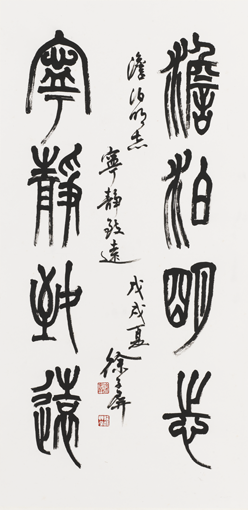 澹泊明志
寧靜致遠
澹泊明志 寧靜致遠 戊戌夏 徐子屏